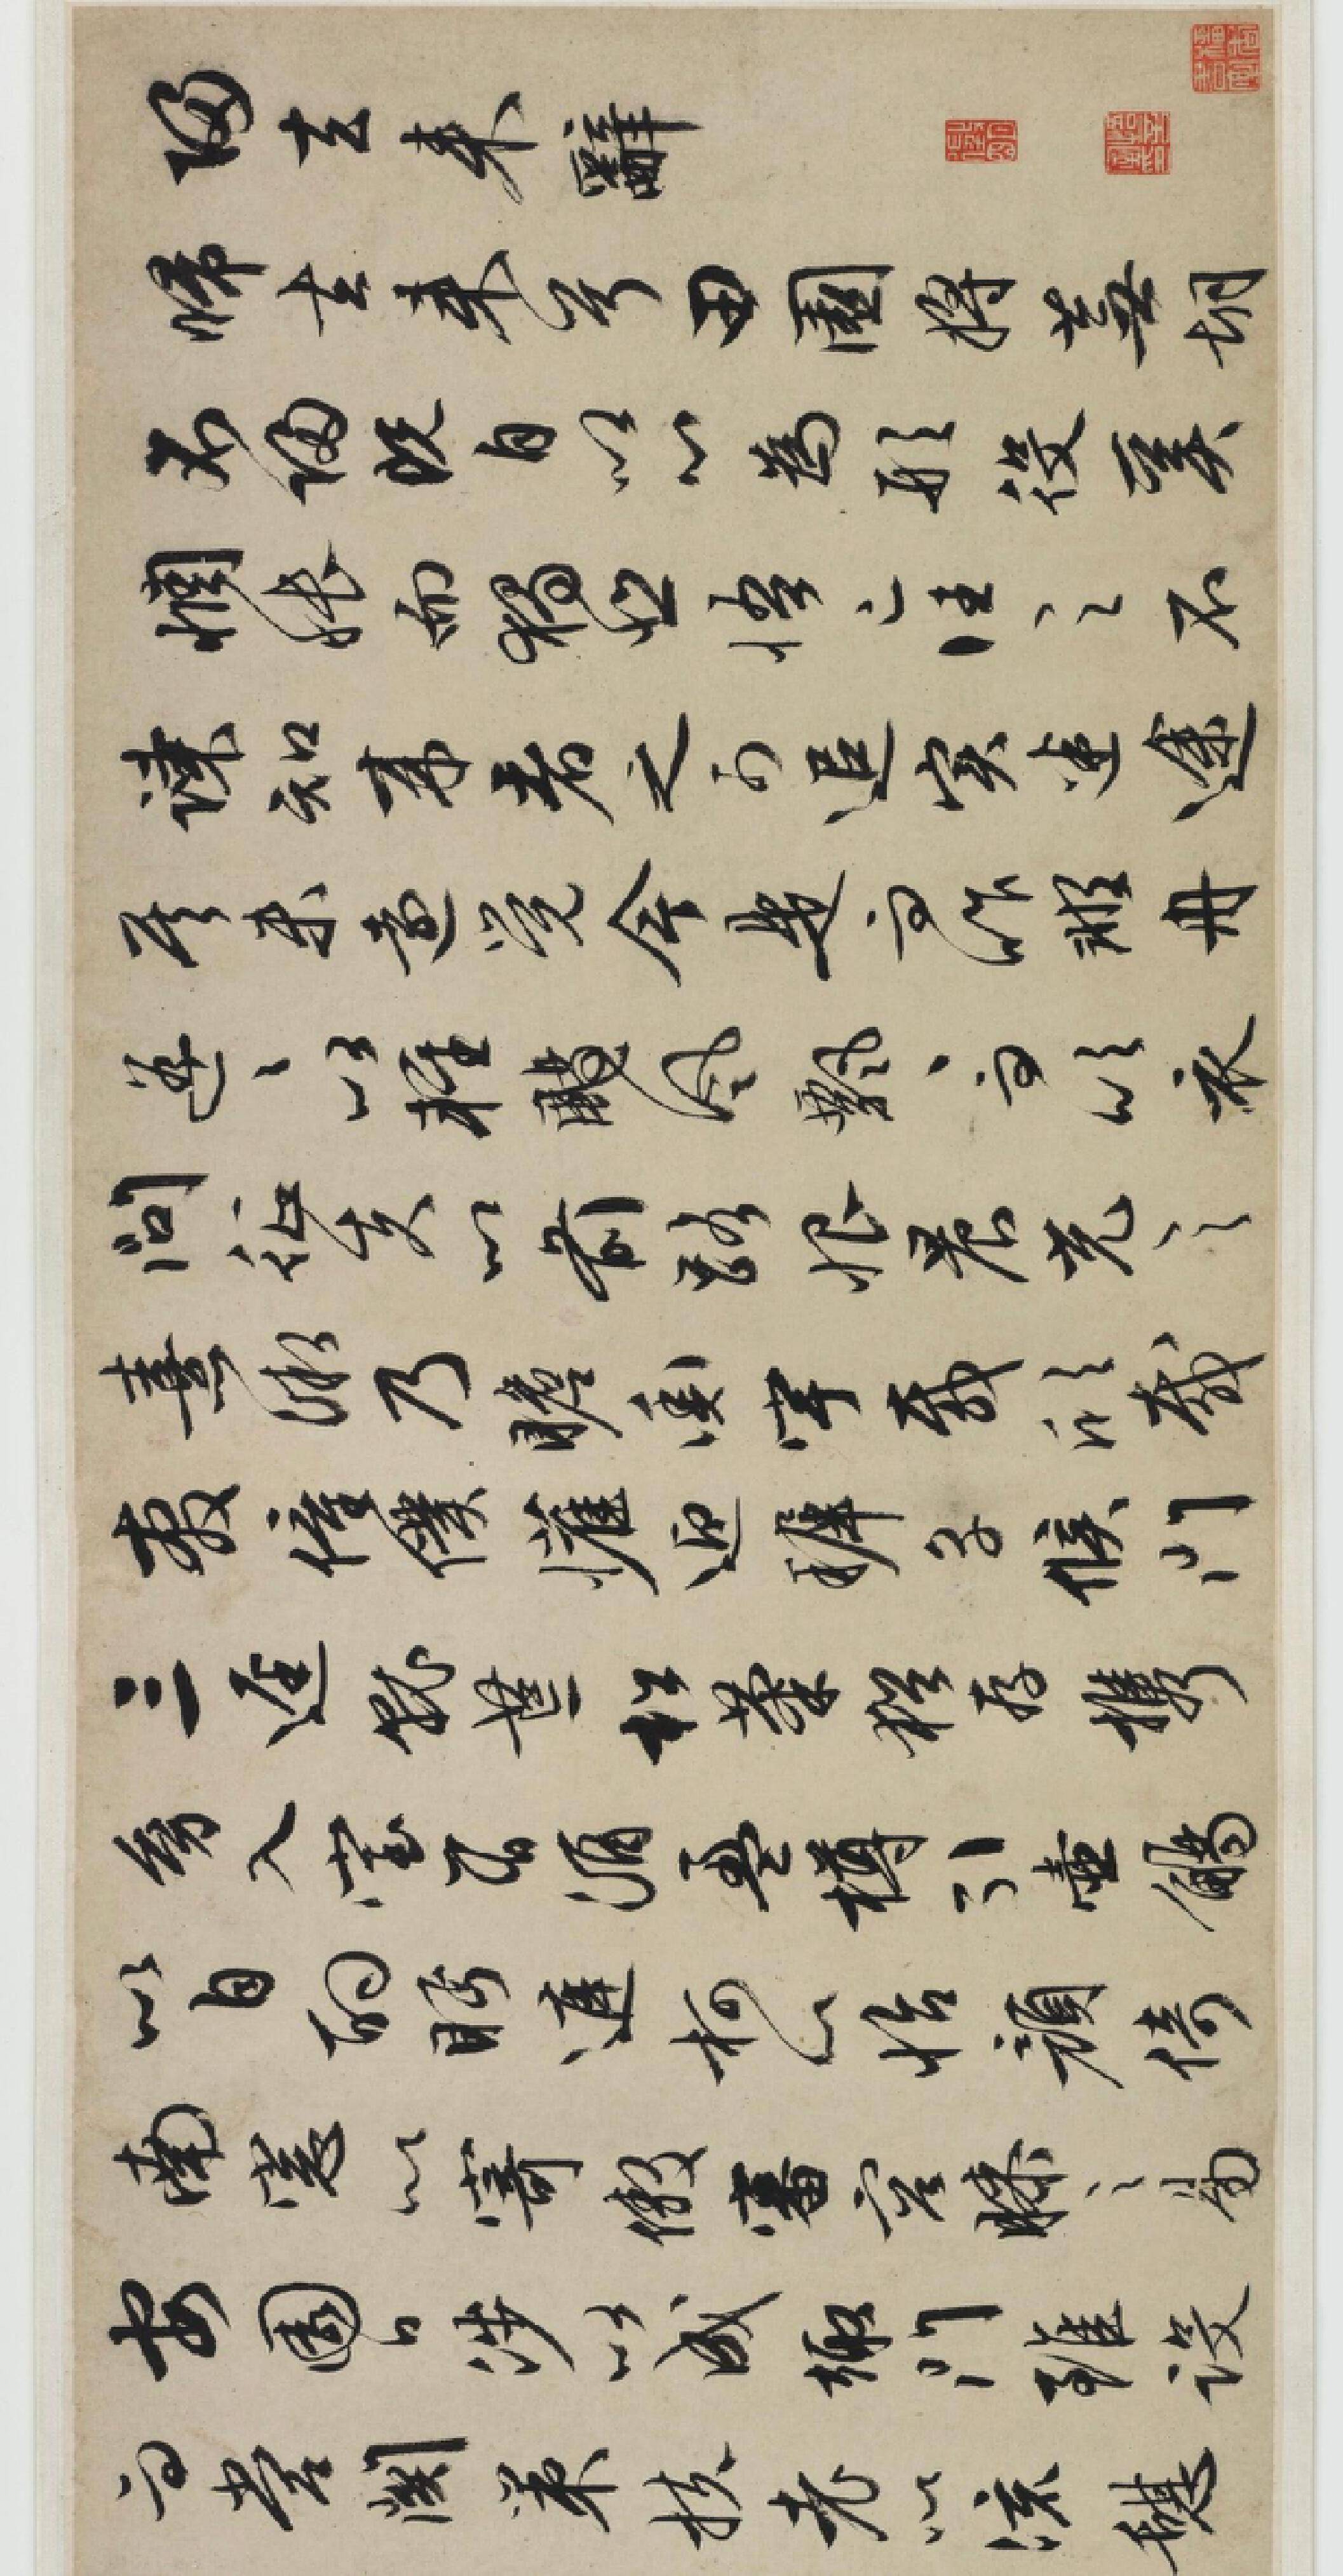 歸去來辭
歸去來兮田園將蕪胡
不歸既自以心為形役奚
惆悵而獨悲悟已往之不
諫知來者之可追實迷途
其未遠覺今是而昨非舟
遙〻以輕颺風飄〻而吹衣
問征夫以前路恨晨光之
熹微乃瞻衡宇載欣載
奔僮僕懽迎稚子候門
三逕就荒松菊猶存攜
幼入室有酒盈樽引壺觴
以自酌眄庭柯以怡顏倚
南窗以寄傲審容膝之易
安園日涉以成趣門雖設
而常關策扶老以流憩